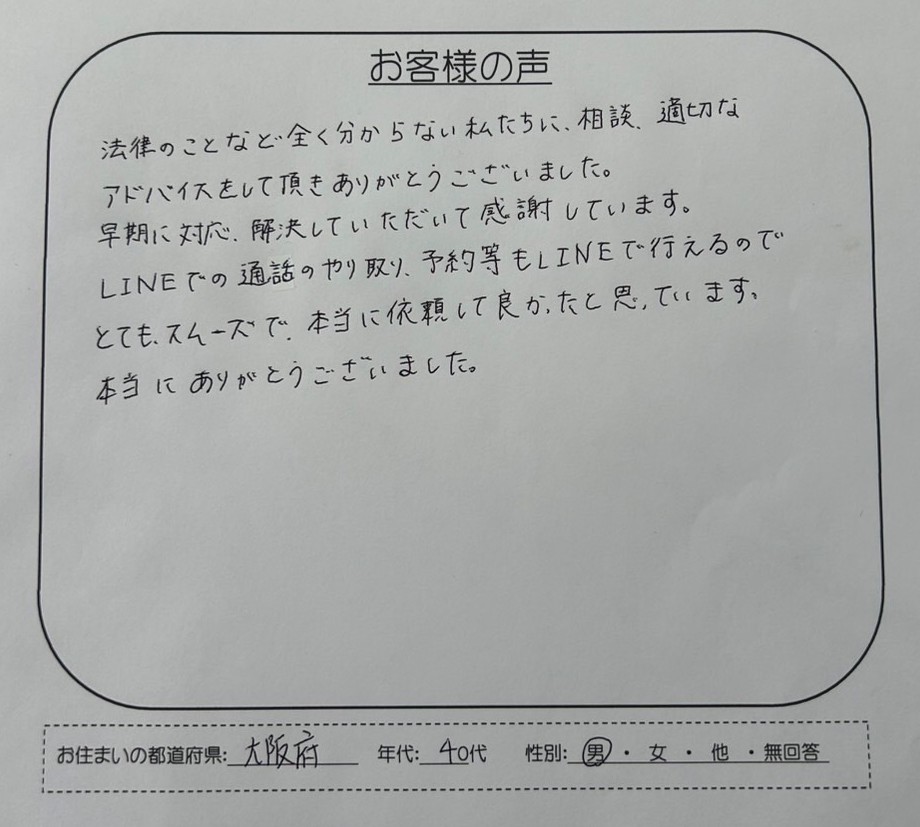 お客様の声
法律のことなど全く分からない私たちに、相談、適切な
アドバイスをして頂きありがとうございました。
早期に対応、解決していただいて感謝しています。
LINEでの通話のやり取り、予約等もLINEで行えるので
とても、スムーズで、本当に依頼して良かったと思っています。
本当にありがとうございました。
お住まいの都道府県: 大阪府 年代: 40代 性別: 男・女・他・無回答